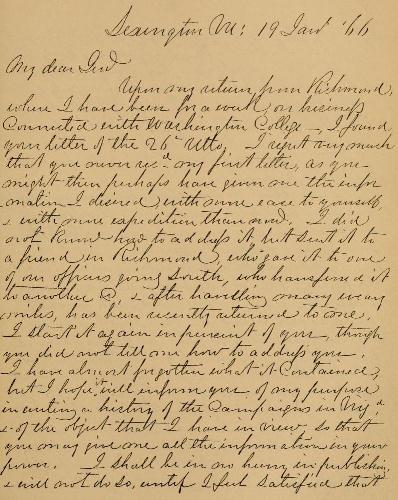 Lexington Va: 19 Jany '66
My dear Genl
Upon my return from Richmond,
where I have been for a week on business
Connected with Washington College, I found
your letter of the 26th Ulto. I regret very much
that you never recd my first letter, as you
might then perhaps have given me the infor
mation I desired, with more ease to yourself
& with more expedition than now. I did
not know how to address it, but sent it to
a friend in Richmond, who gave it to one
of our officers going South, who transferred it
to another &, & after travelling many weary
miles, has been recently returned to me.
I start it again in pursuit of you, though
you did not tell me how to address you.
I have almost forgotten what it Contained,
but I hope it will inform you of my purpose
in writing a history of the Campaigns in Virga
& of the object that I have in view, so that
you may give me all the information in your
power. I shall be in no hurry in publishing,
& will not do so, until I feel satisfied that